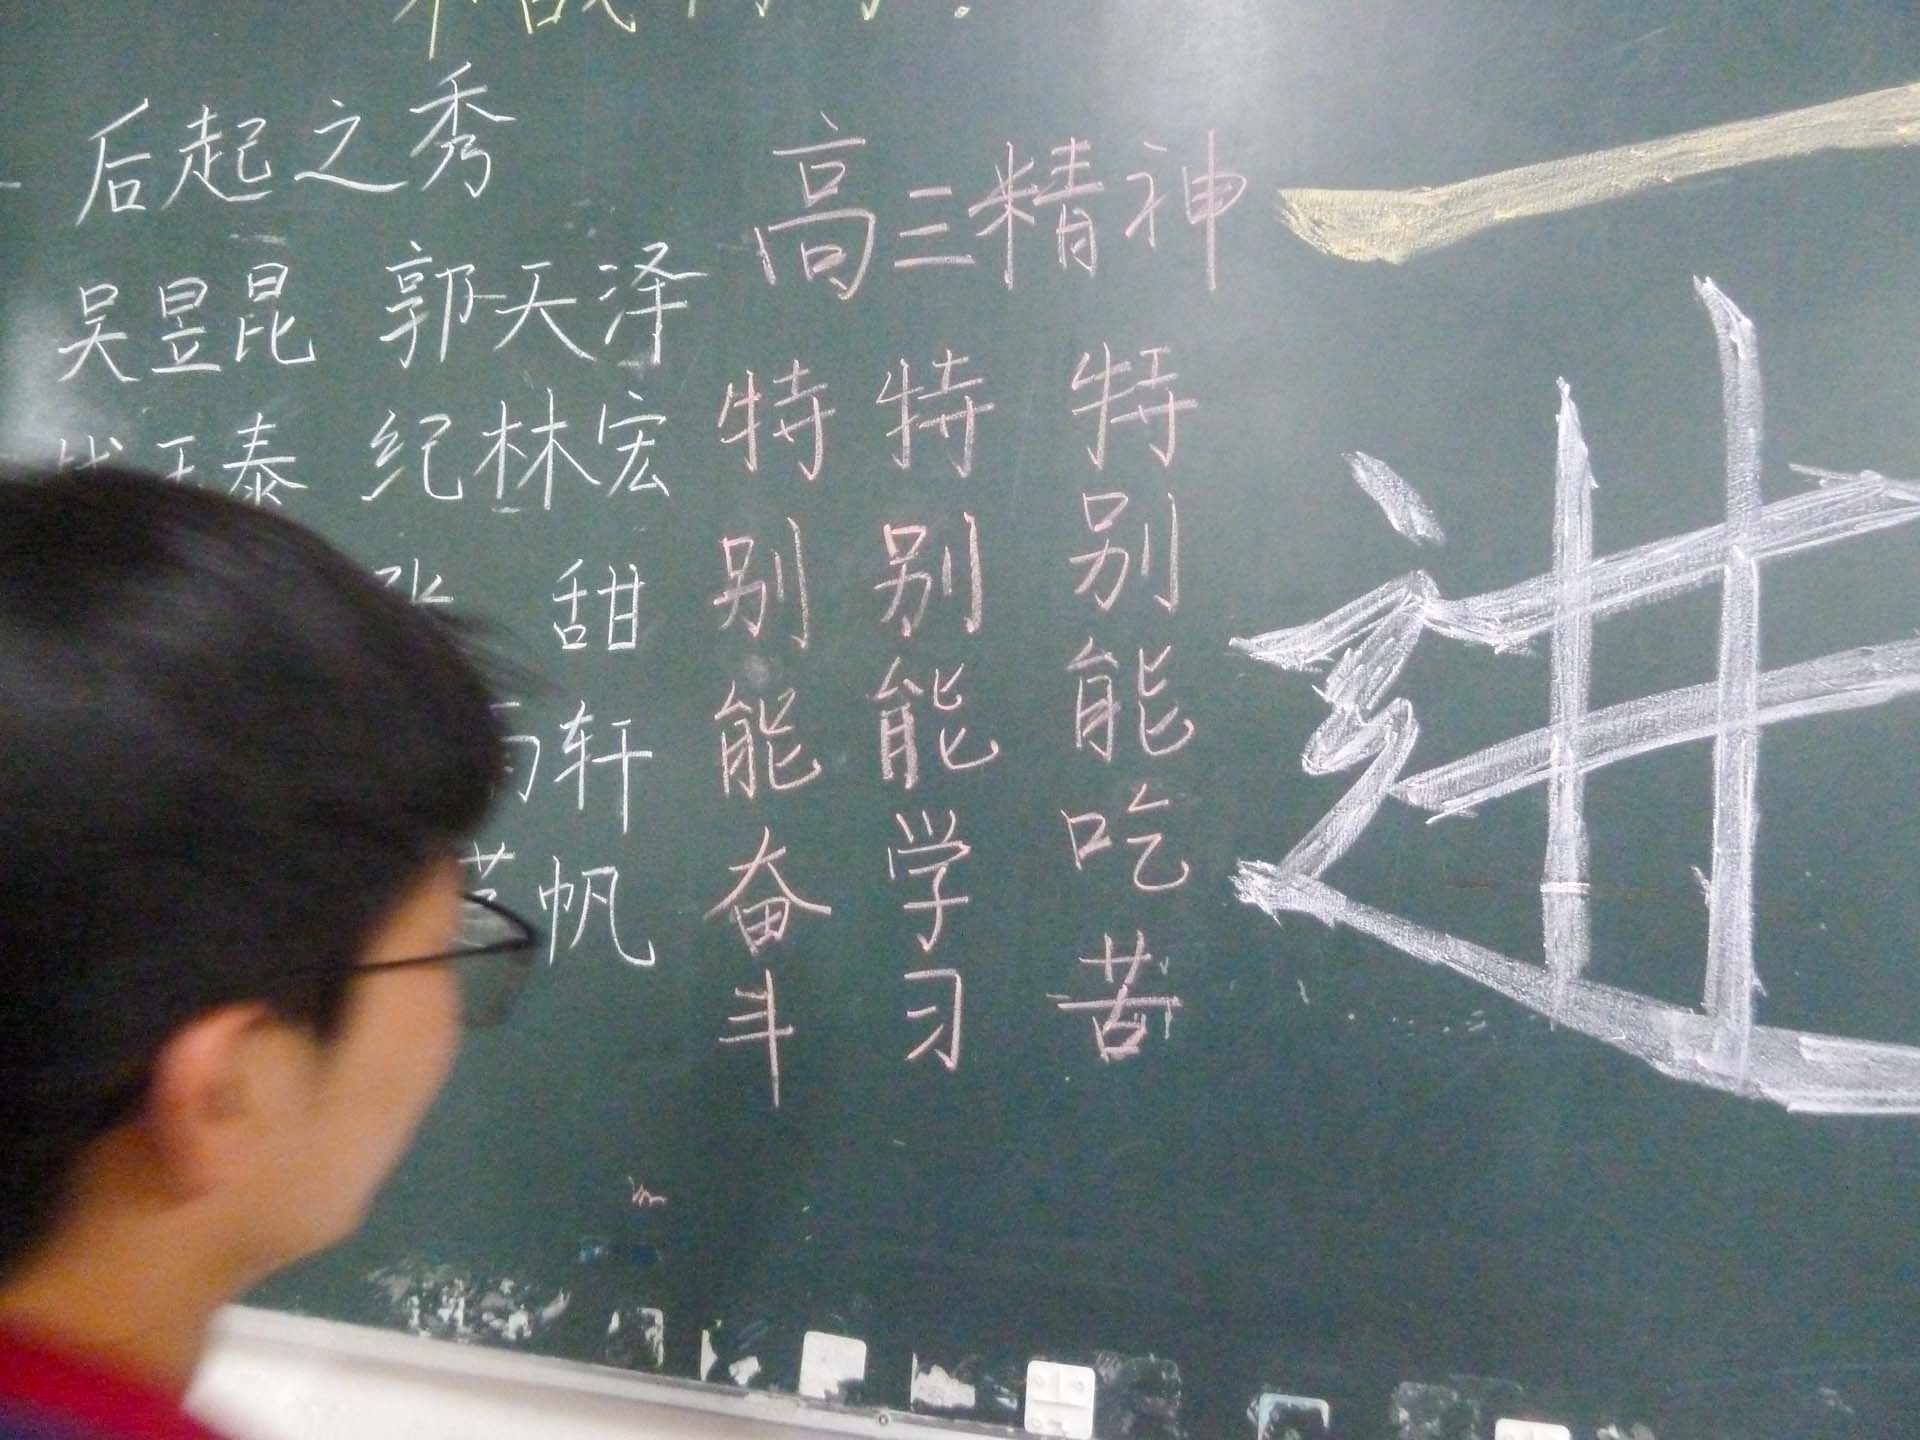 后起之秀
吴昱昆 郭天泽
泰 纪林宏
张 甜
轩
帆
高三精神
特别能吃苦
特别能学习
特别能奋斗
进